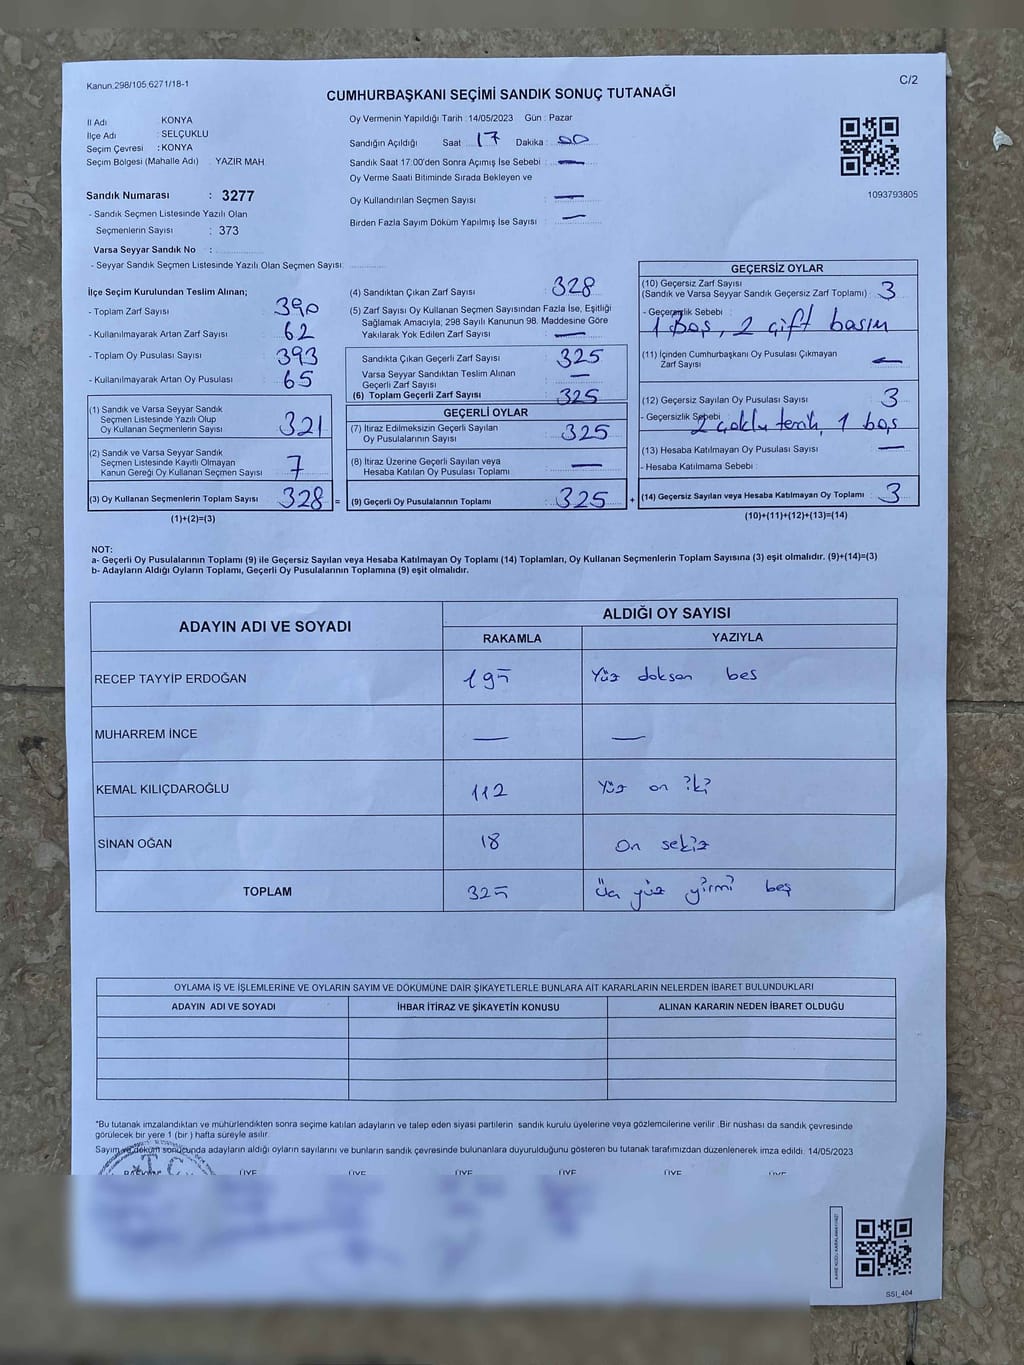 Kanun.298/105 6271/18-1
C/2
CUMHURBAŞKANI SEÇİMİ SANDIK SONUÇ TUTANAĞI
İl Adı KONYA
İlçe Adı : SELÇUKLU
Seçim Çevresi : KONYA
Seçim Bölgesi (Mahalle Adı) : YAZIR MAH.
Sandık Numarası : 3277
- Sandık Seçmen Listesinde Yazılı Olan
Seçmenlerin Sayısı : 373
Varsa Seyyar Sandık No :
- Seyyar Sandık Seçmen Listesinde Yazılı Olan Seçmen Sayısı:
Oy Vermenin Yapıldığı Tarih : 14/05/2023 Gün : Pazar
Sandığın Açıldığı Saat : 17 Dakika : 00
Sandık Saat 17:00'den Sonra Açımış İse Sebebi : —
Oy Verme Saati Bitiminde Sırada Bekleyen ve
Oy Kullandırılan Seçmen Sayısı : —
Birden Fazla Sayım Döküm Yapılmış İse Sayısı : —
1093793805
İlçe Seçim Kurulundan Teslim Alınan;
- Toplam Zarf Sayısı : 390
- Kullanılmayarak Artan Zarf Sayısı : 62
- Toplam Oy Pusulası Sayısı : 393
- Kullanılmayarak Artan Oy Pusulası : 65
(1) Sandık ve Varsa Seyyar Sandık
Seçmen Listesinde Yazılı Olup
Oy Kullanan Seçmenlerin Sayısı : 321
(2) Sandık ve Varsa Seyyar Sandık
Seçmen Listesinde Kayıtlı Olmayan
Kanun Gereği Oy Kullanan Seçmen Sayısı : 7
(3) Oy Kullanan Seçmenlerin Toplam Sayısı : 328 =
(1)+(2)=(3)
(4) Sandıktan Çıkan Zarf Sayısı : 328
(5) Zarf Sayısı Oy Kullanan Seçmen Sayısından Fazla İse, Eşitliği
Sağlamak Amacıyla; 298 Sayılı Kanunun 98. Maddesine Göre
Yakılarak Yok Edilen Zarf Sayısı : —
Sandıkta Çıkan Geçerli Zarf Sayısı : 325
Varsa Seyyar Sandıktan Teslim Alınan
Geçerli Zarf Sayısı : —
(6) Toplam Geçerli Zarf Sayısı : 325
GEÇERLİ OYLAR
(7) İtiraz Edilmeksizin Geçerli Sayılan
Oy Pusulalarının Sayısı : 325
(8) İtiraz Üzerine Geçerli Sayılan veya
Hesaba Katılan Oy Pusulası Toplamı : —
(9) Geçerli Oy Pusulalarının Toplamı : 325 +
GEÇERSİZ OYLAR
(10) Geçersiz Zarf Sayısı
(Sandık ve Varsa Seyyar Sandık Geçersiz Zarf Toplamı) : 3
- Geçersizlik Sebebi :
1 Boş, 2 çift basım
(11) İçinden Cumhurbaşkanı Oy Pusulası Çıkmayan
Zarf Sayısı : —
(12) Geçersiz Sayılan Oy Pusulası Sayısı : 3
- Geçersizlik Sebebi :
2 çoklu terih, 1 boş
(13) Hesaba Katılmayan Oy Pusulası Sayısı : —
- Hesaba Katılmama Sebebi :
(14) Geçersiz Sayılan veya Hesaba Katılmayan Oy Toplamı : 3
(10)+(11)+(12)+(13)=(14)
NOT:
a- Geçerli Oy Pusulalarının Toplamı (9) ile Geçersiz Sayılan veya Hesaba Katılmayan Oy Toplamı (14) Toplamları, Oy Kullanan Seçmenlerin Toplam Sayısına (3) eşit olmalıdır. (9)+(14)=(3)
b- Adayların Aldığı Oyların Toplamı, Geçerli Oy Pusulalarının Toplamına (9) eşit olmalıdır.
ADAYIN ADI VE SOYADI
ALDIĞI OY SAYISI
RAKAMLA YAZIYLA
RECEP TAYYİP ERDOĞAN 195 Yüz doksan bes
MUHARREM İNCE — —
KEMAL KILIÇDAROĞLU 112 Yüz on iki
SİNAN OĞAN 18 On sekiz
TOPLAM 325 Üç yüz yirmi beş
OYLAMA İŞ VE İŞLEMLERİNE VE OYLARIN SAYIM VE DÖKÜMÜNE DAİR ŞİKAYETLERLE BUNLARA AİT KARARLARIN NELERDEN İBARET BULUNDUKLARI
ADAYIN ADI VE SOYADI İHBAR İTİRAZ VE ŞİKAYETİN KONUSU ALINAN KARARIN NEDEN İBARET OLDUĞU
*Bu tutanak imzalandıktan ve mühürlendikten sonra seçime katılan adayların ve talep eden siyasi partilerin sandık kurulu üyelerine veya gözlemcilerine verilir .Bir nüshası da sandık çevresinde
görülecek bir yere 1 (bir) hafta süreyle asılır.
Sayım ve döküm sonucunda adayların aldığı oyların sayılarını ve bunların sandık çevresinde bulunanlara duyurulduğunu gösteren bu tutanak tarafımızdan düzenlenerek imza edildi. 14/05/2023
T.C.
BAŞKAN ÜYE ÜYE ÜYE ÜYE ÜYE ÜYE
SSI_404